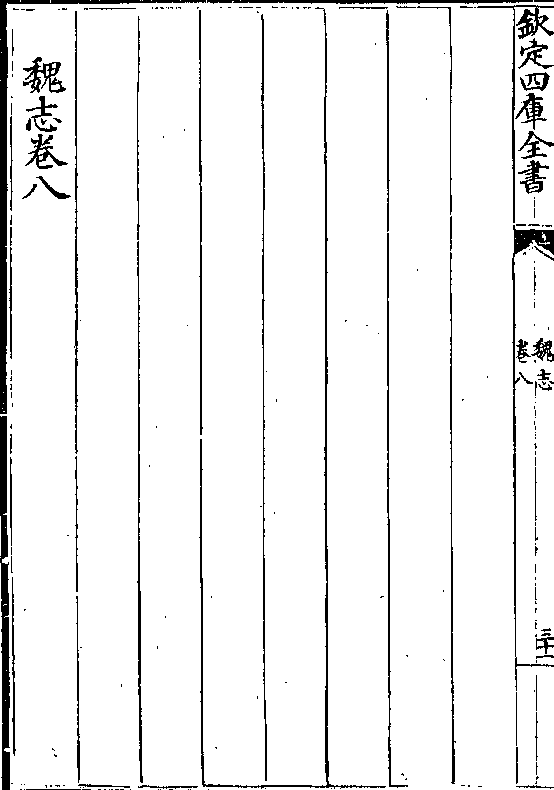 欽定四庫全書
魏志
卷八
三十一
魏志卷八